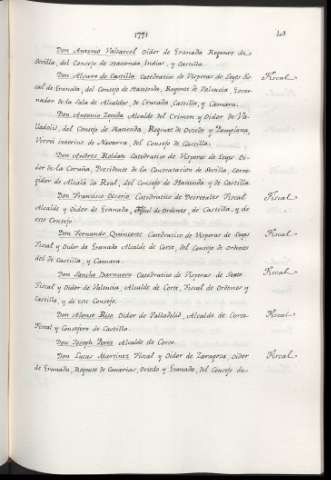 1791
Don Antonio Valcarcel Oidor de Granada Regente de
Sevilla, del Consejo de Hacienda, Indias, y Castilla.
Don Alvaro de Castilla Catedratico de Visperas de Leyes Fis
cal de Granada, del Consejo de Hacienda, Regente de Valencia Gover
nador de la Sala de Alcaldes, de Granada, Castilla, y Camara.
Fiscal
Don Antonio Alcalde del Crimen y Oidor de Va
lladolid, del Consejo de Hacienda, Regente de Oviedo y Pamplona,
Virrei interino de Navarra, del Consejo de Castilla.
Don Andres Roldan Catedratico de Visperas de Leyes Oi-
dor de la Coruña, Presidente de la Contratacion de Sevilla, corre
gidor de Alcalá la Real, del Consejo de Hacienda y de Castilla
Don Francisco Catedratico de Decretales Fiscal
Alcalde y Oidor de Granada, Fiscal de Ordenes, de Castilla, y de
este Consejo
Fiscal
Don Fernando Quincoces Catedratico de Visperas de Leyes
Fiscal y Oidor de Granada Alcalde de Corte, del Consejo de Ordenes
del de Castilla, y Camara.
Fiscal
Don Sancho Barnuevo Catedratico de Visperas de Sexto
Fiscal y Oidor de Valencia, Alcalde de Corte, Fiscal de Ordenes y
Castilla, y de este Consejo.
Fiscal
Don Alonso Rico Oidor de Valladolid, Alcalde de Corte
Fiscal y Consejero de Castilla.
Fiscal
Don Joseph Perez Alcalde de Corte.
Don Lucas Martinez Fiscal y Oidor de Zaragoza, Oidor
de Granada, Regente de Canarias, Oviedo y Granada, del Consejo de
Fiscal